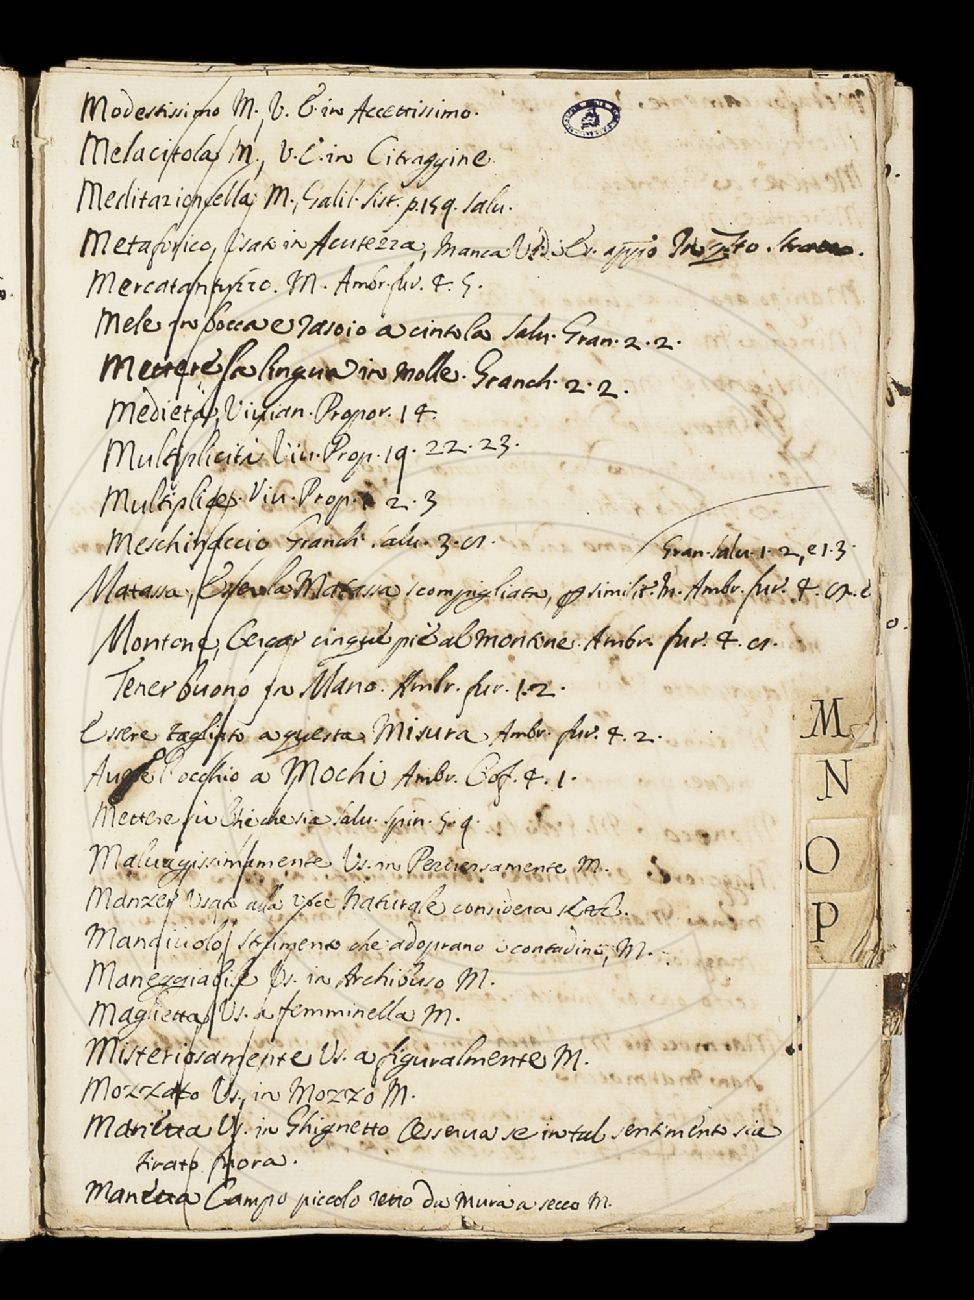 Modestissimo M. V. È in Accettissimo.
Melacitola M. V. È in Citraggine
Meditazioncella M. Galil. Sist. p. 159. Salu.
Metaforico, Usato in Acutezza, manca
Mercatantuzzo. M. Ambr. fur. 4. 5.
Mele in bocca e rasoio a cintola Salu. Gran. 2. 2.
Mettere la lingua in molle. Granch. 2. 2.
Medietà, Vivian. Propor. 14
Multiplicità Viu. Prop. 19. 22. 23.
Multiplice. Viu. Prop. 2. 3
Meschinaccio Granch. Salu. 3.
Gran. Salu. 1. 2, e 1. 3.
Matassa, Esser la Matassa scompigliata, simili. M. Ambr. fur. 4.
Montone, Cercar cinque piè al montone. Ambr. fur. 4.
Tener buono in Mano. Ambr. fur. 1. 2.
Essere tagliato a questa Misura Ambr. fur. 4. 2.
l'occhio a Mochi Ambr. Cof. 4. 1.
Mettere sù Chi che sia Salu. Spin. 5. 9.
Maluagissimamente Us. in Peruersamente M.
Manzer Usato alla voce Naturale considera
strumento che adoprano i contadini, M.
Maneggiabile Us. in Archibuso M.
Maglietta Us. a femminella M.
Misteriosamente Us. a figuralmente M.
Mozzato Us. in Mozzo M.
Us. in Ghignetto Osserua se in tal sentimento sia
tirato fuora.
Campo piccolo retto da mura a secco M.
M
N
O
P